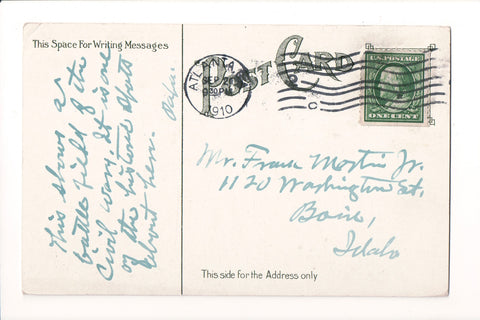 This Space For Writing Messages
POST CARD
ATLANTA
SEP 2
930 PM
1910
C
U.S. POSTAGE
ONE CENT
This shows a
battle field of the
Civil war, It is one
of the historic spots
about here.
Mr. Frank Martin Jr.
1120 Washington St,
Boise,
Idaho
This side for the Address only